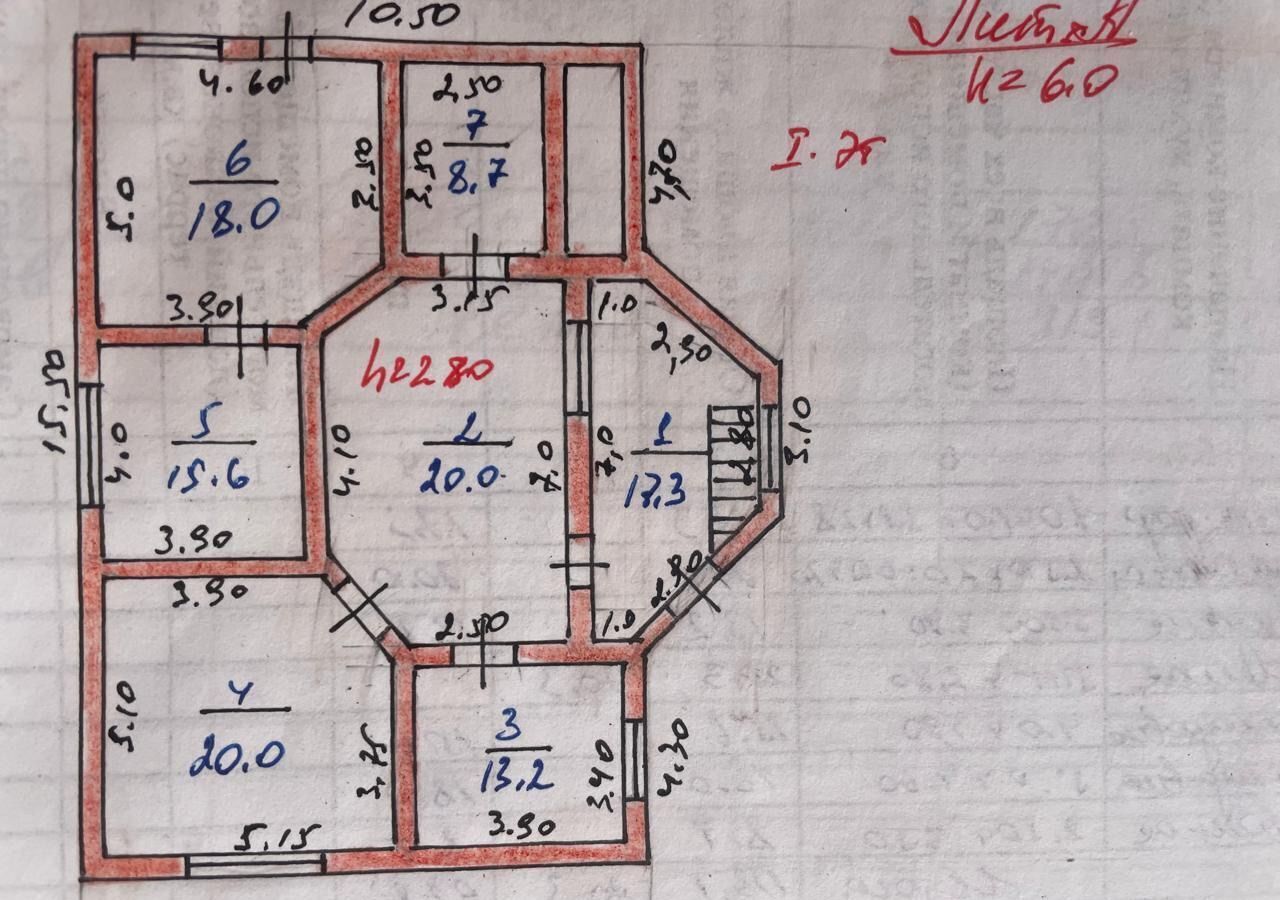 10.50
Лит. А
h=6.0
I. эт
4.60
6
18.0
5.0
3.50
2,50
7
8.7
3.50
4,70
3.90
3.15
1.0
2,90
h=2.80
15.50
4.0
5
15.6
3.90
4.10
2
20.0
7.0
7,0
1
17.3
3.10
2.90
1.0
2.50
3.90
5.10
4
20.0
3,75
5.15
3
13.2
3.40
3.90
4.30